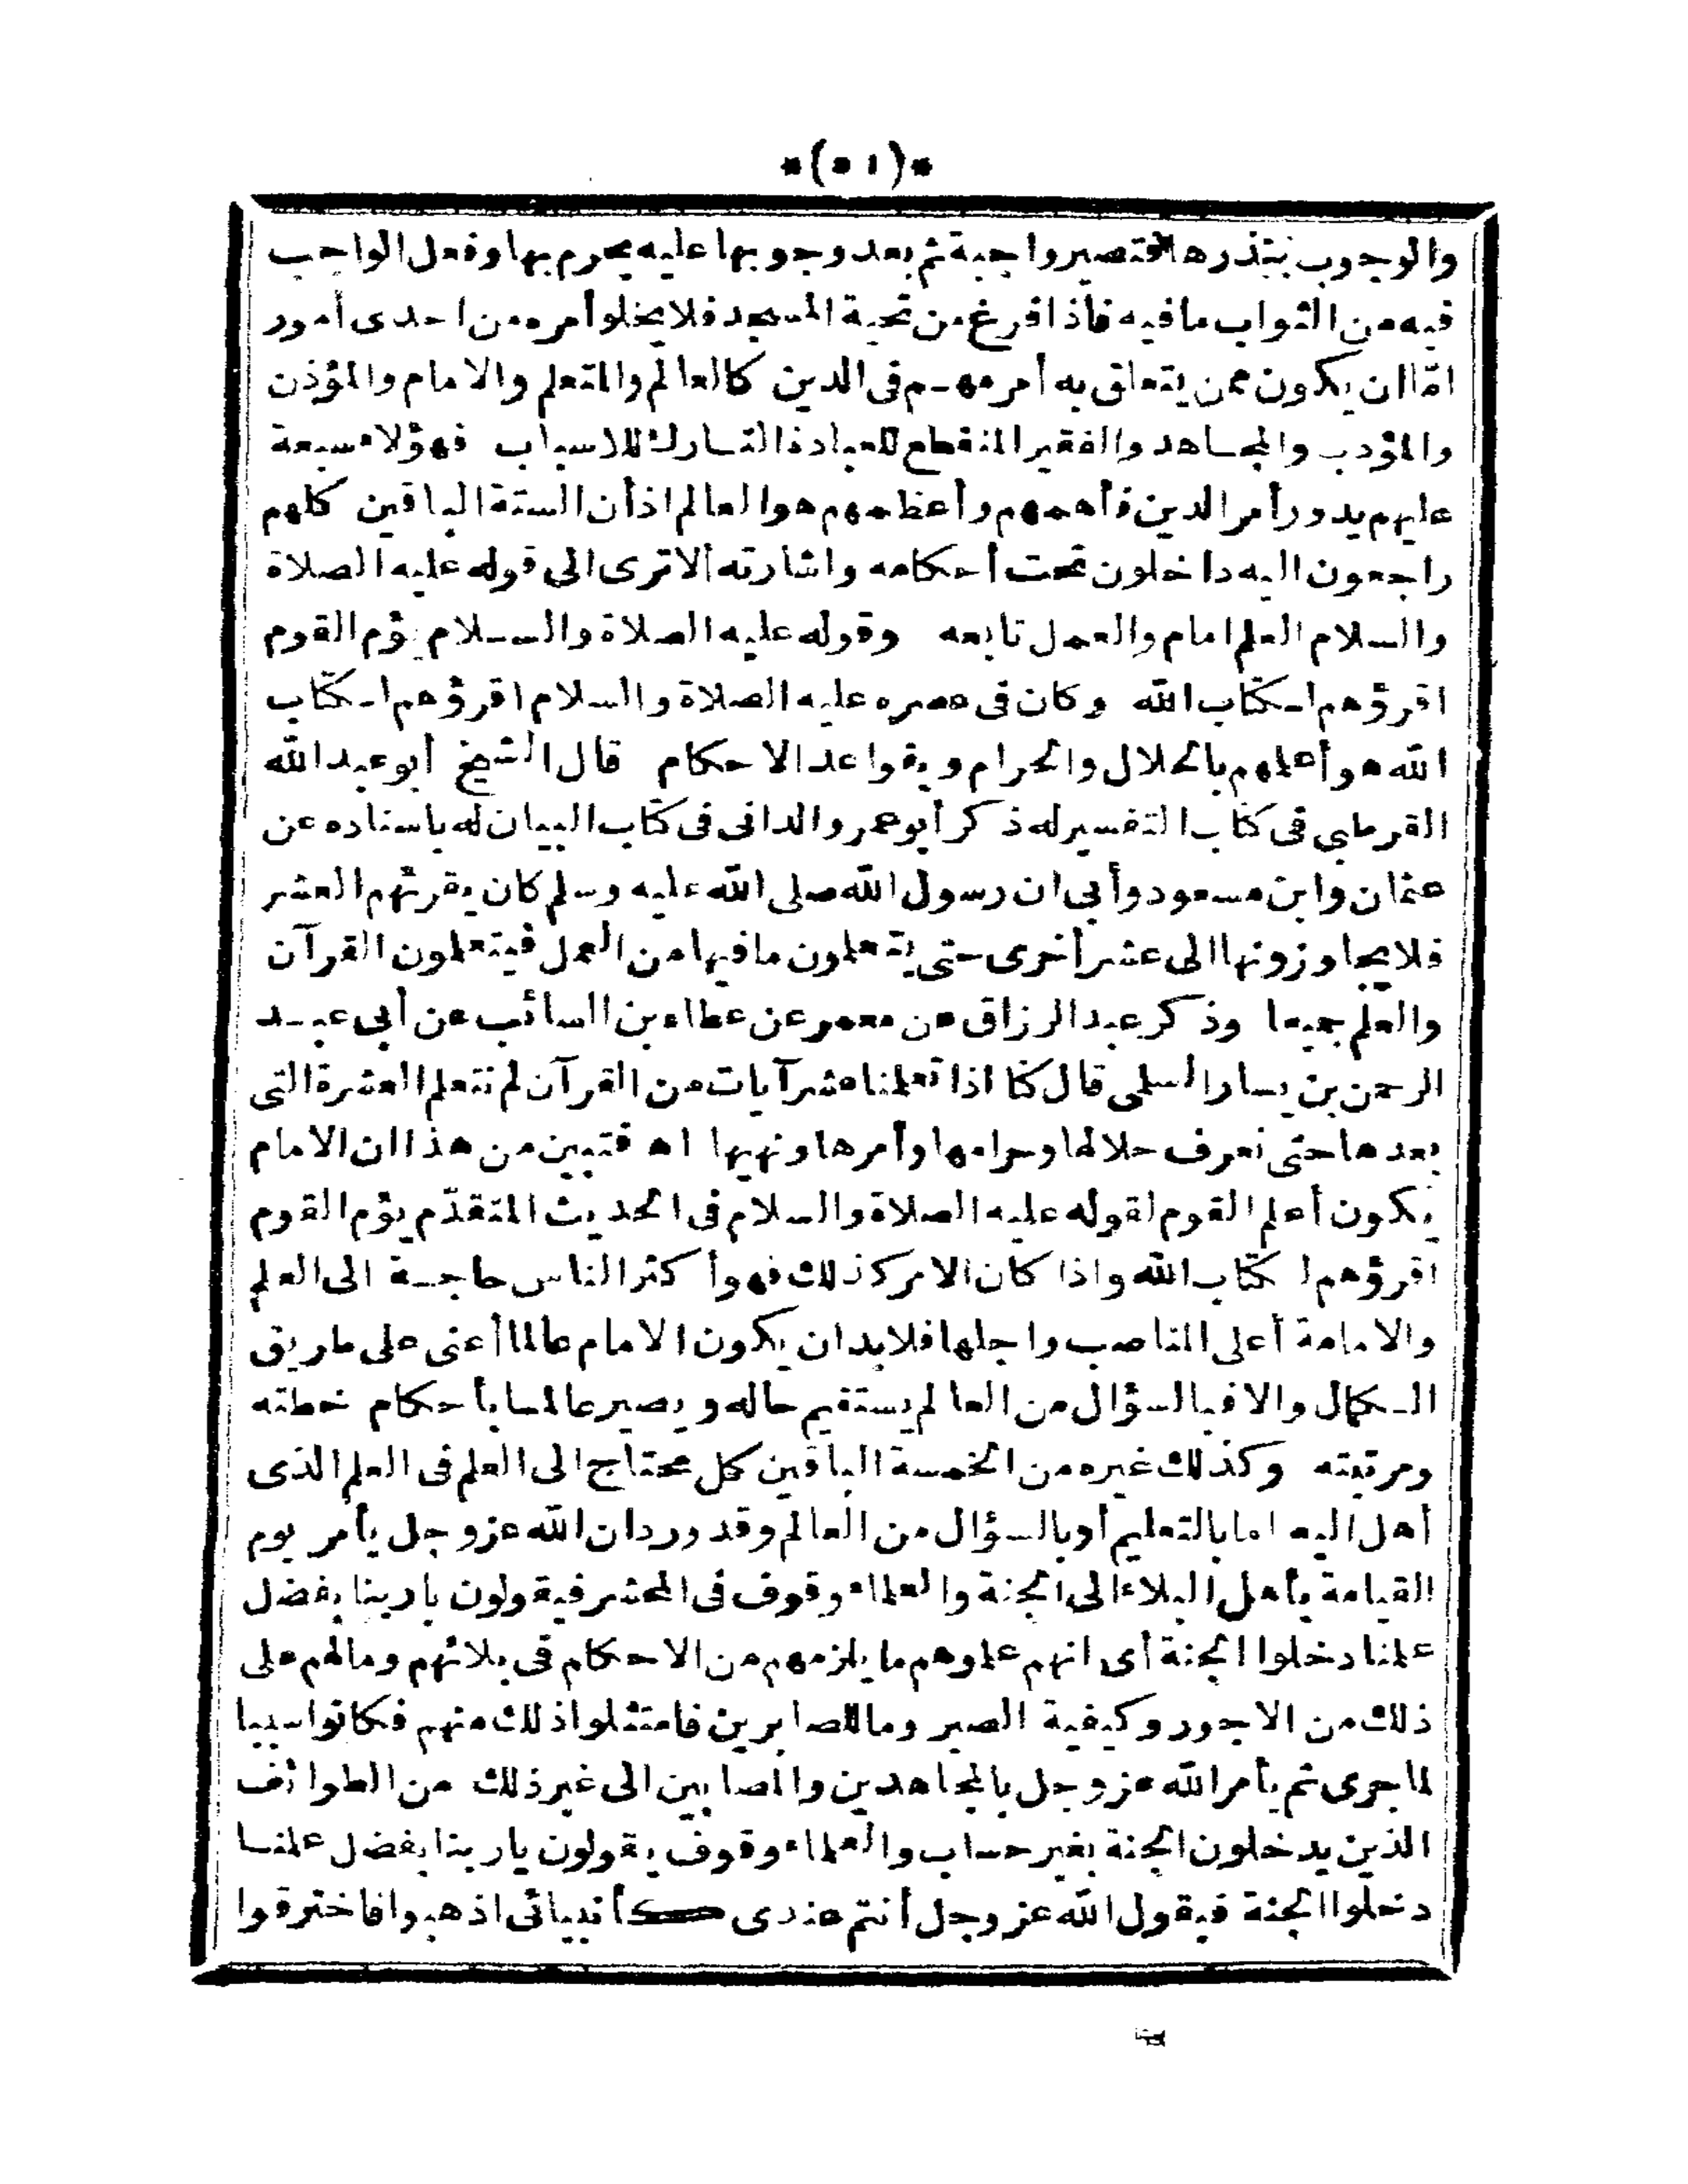 *(٥١)*
والوجوب بنذرها فتصير واجبة ثم بعد وجوبها عليه يحرم بها وفعل الواجب
فيه من الثواب ما فيه فاذا فرغ من تحية المسجد فلا يخلو أمره من احدى أمور
امّا ان يكون ممن يتعلق به أمر مهم فى الدين كالعالم والمتعلم والامام والمؤذن
والمؤدب والمجاهد والفقير المنقطع للعبادة التارك للاسباب فهؤلاء سبعة
عليهم يدور أمر الدين فأهمهم وأعظمهم هو العالم اذ أن الستة الباقين كلهم
راجعون اليه داخلون تحت أحكامه واشارته ألا ترى الى قوله عليه الصلاة
والسلام العلم امام والعمل تابعه وقوله عليه الصلاة والسلام يؤم القوم
اقرؤهم لكتاب الله وكان فى عصره عليه الصلاة والسلام اقرؤهم لكتاب
الله هو أعلمهم بالحلال والحرام وبقواعد الاحكام قال الشيخ أبو عبد الله
القرطبي فى كتاب التفسير له ذكر أبو عمرو الدانى فى كتاب البيان له باسناده عن
عثمان وابن مسعود وأبى ان رسول الله صلى الله عليه وسلم كان يقرئهم العشر
فلا يجاوزونها الى عشر أخرى حتى يتعلمون ما فيها من العمل فيتعلمون القرآن
والعلم جميعا وذكر عبد الرزاق عن معمر عن عطاء بن السائب عن أبى عبد
الرحمن بن يسار السلمى قال كنا اذا تعلمنا عشر آيات من القرآن لم نتعلم العشرة التى
بعدها حتى نعرف حلالها وحرامها وأمرها ونهيها اه فتبين من هذا ان الامام
يكون أعلم القوم لقوله عليه الصلاة والسلام فى الحديث المتقدّم يؤم القوم
اقرؤهم لكتاب الله واذا كان الامر كذلك فهو أكثر الناس حاجة الى العلم
والامامة أعلى المناصب واجلها فلا بد ان يكون الامام عالما أعنى على طريق
الكمال والا فبالسؤال من العالم يستقيم حاله ويصير عالما بأحكام خطته
ومرتبته وكذلك غيره من الخمسة الباقين كل محتاج الى العلم فى العلم الذى
أهل اليه اما بالتعليم أو بالسؤال من العالم وقد ورد ان الله عز وجل يأمر يوم
القيامة بأهل البلاء الى الجنة والعلماء وقوف فى المحشر فيقولون يا ربنا بفضل
علمنا دخلوا الجنة أى انهم علموهم ما يلزمهم من الاحكام فى بلائهم ومالهم على
ذلك من الاجور وكيفية الصبر وما للصابرين فامتثلوا ذلك منهم فكانوا سببا
لما جرى ثم يأمر الله عز وجل بالمجاهدين والمصابين الى غير ذلك من الطوائف
الذين يدخلون الجنة بغير حساب والعلماء وقوف يقولون يا ربنا بفضل علمنا
دخلوا الجنة فيقول الله عز وجل أنتم عندى كأنبيائى اذهبوا فاخترقوا